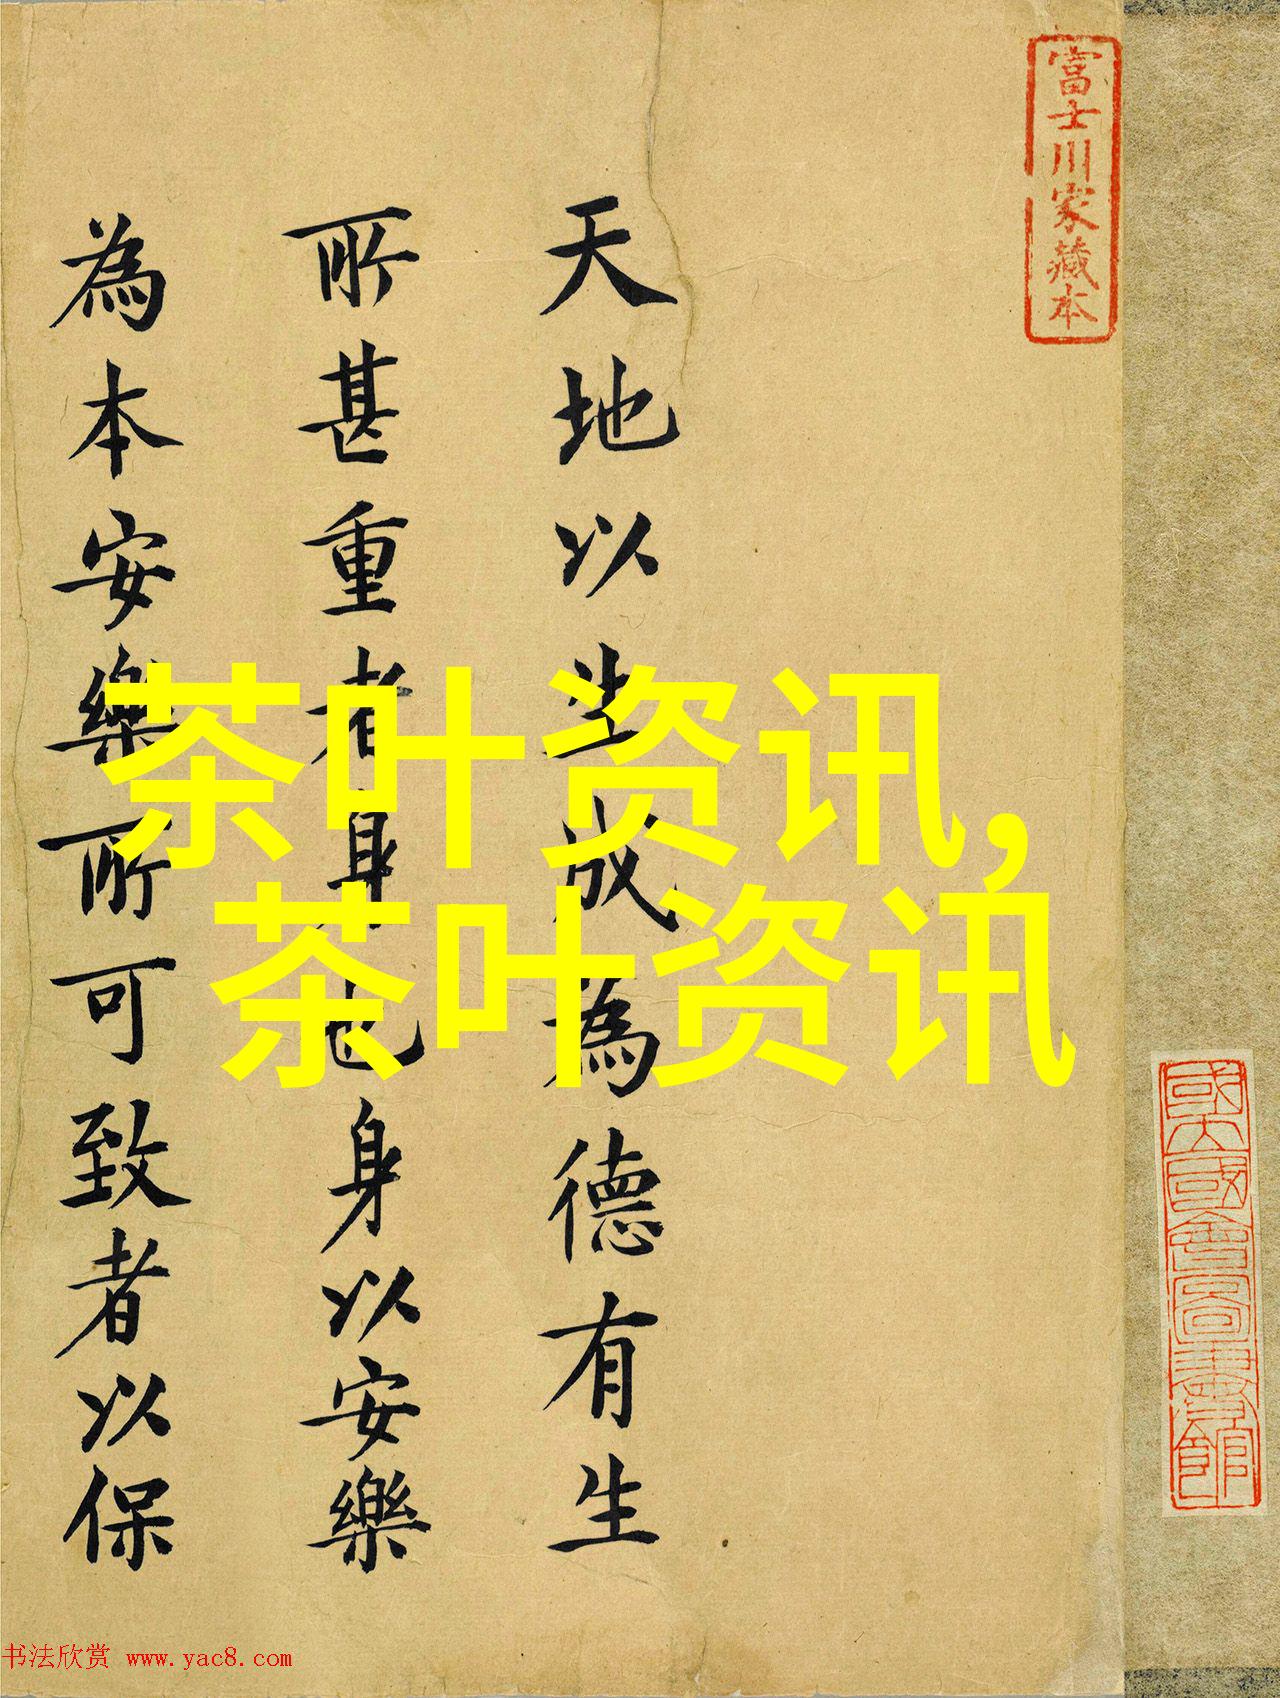 富士川家藏本
天地以生成為德有生
所甚重者身也身以安樂
為本安樂所可致者以保
茶叶资讯,
茶叶资讯
國立國會圖書館
书法欣赏 www.yac8.com